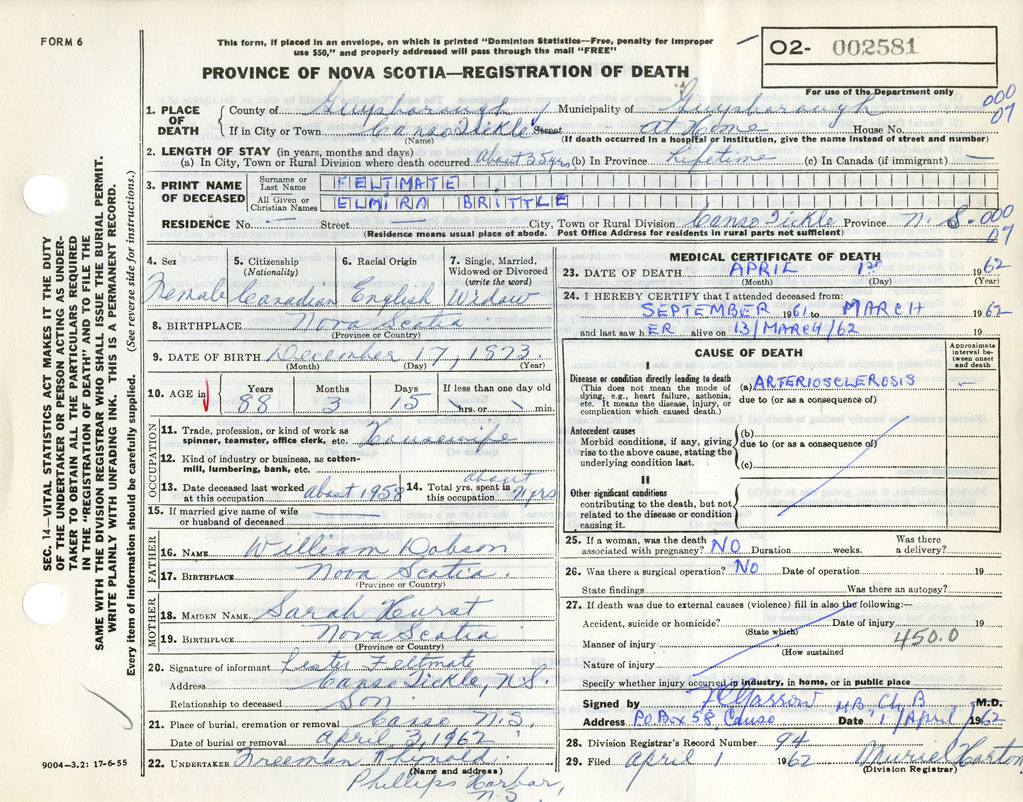 FORM 6
This form, if placed in an envelope, on which is printed "Dominion Statistics—Free, penalty for improper
use $50," and properly addressed will pass through the mail "FREE"
PROVINCE OF NOVA SCOTIA—REGISTRATION OF DEATH
O2- 002581
For use of the Department only
SEC. 14—VITAL STATISTICS ACT MAKES IT THE DUTY
OF THE UNDERTAKER OR PERSON ACTING AS UNDER-
TAKER TO OBTAIN ALL THE PARTICULARS REQUIRED
IN THE "REGISTRATION OF DEATH" AND TO FILE THE
SAME WITH THE DIVISION REGISTRAR WHO SHALL ISSUE THE BURIAL PERMIT.
WRITE PLAINLY WITH UNFADING INK. THIS IS A PERMANENT RECORD.
Every item of information should be carefully supplied. (See reverse side for instructions.)
1. PLACE OF DEATH
County of Guysborough Municipality of Guysborough
000
07
If in City or Town Canso Tickle Street At Home House No.
(Name) (If death occurred in a hospital or institution, give the name instead of street and number)
2. LENGTH OF STAY (in years, months and days)
(a) In City, Town or Rural Division where death occurred About 35 yrs (b) In Province Lifetime (c) In Canada (if immigrant) —
3. PRINT NAME OF DECEASED
Surname or Last Name FELTMATE
All Given or Christian Names ELMIRA BRITTLE
RESIDENCE No. — Street — City, Town or Rural Division Canso Tickle Province N. S.
000
07
(Residence means usual place of abode. Post Office Address for residents in rural parts not sufficient)
4. Sex Female
5. Citizenship (Nationality) Canadian
6. Racial Origin English
7. Single, Married, Widowed or Divorced (write the word) Widow
8. BIRTHPLACE Nova Scotia
(Province or Country)
9. DATE OF BIRTH December 17, 1973.
(Month) (Day) (Year)
10. AGE in Years 88 Months 3 Days 15 If less than one day old hrs. or min.
OCCUPATION
11. Trade, profession, or kind of work as spinner, teamster, office clerk, etc. Housewife
12. Kind of industry or business, as cotton-mill, lumbering, bank, etc.
13. Date deceased last worked at this occupation about 1958
14. Total yrs. spent in this occupation about 71 yrs
15. If married give name of wife or husband of deceased ———
FATHER
16. NAME William Dobson
17. BIRTHPLACE Nova Scotia.
(Province or Country)
MOTHER
18. MAIDEN NAME Sarah Hurst
19. BIRTHPLACE Nova Scotia
(Province or Country)
20. Signature of informant Lester Feltmate
Address Canso Tickle, N.S.
Relationship to deceased Son
21. Place of burial, cremation or removal Canso N.S.
Date of burial or removal April 3, 1962
22. UNDERTAKER Freeman
(Name and address)
Phillips Harbor,
N.S.
9004—3.2: 17-6-55
MEDICAL CERTIFICATE OF DEATH
23. DATE OF DEATH APRIL 1st 1962
(Month) (Day) (Year)
24. I HEREBY CERTIFY that I attended deceased from:
SEPTEMBER 1961 to MARCH 1962
and last saw hER alive on 13/MARCH/62 19
CAUSE OF DEATH
Approximate interval between onset and death
I
Disease or condition directly leading to death
(This does not mean the mode of dying, e.g., heart failure, asthenia, etc. It means the disease, injury, or complication which caused death.)
(a) ARTERIOSCLEROSIS —
due to (or as a consequence of)
Antecedent causes
Morbid conditions, if any, giving rise to the above cause, stating the underlying condition last.
(b)
due to (or as a consequence of)
(c)
II
Other significant conditions
contributing to the death, but not related to the disease or condition causing it.
25. If a woman, was the death associated with pregnancy? NO Duration weeks. Was there a delivery?
26. Was there a surgical operation? NO Date of operation 19
State findings Was there an autopsy?
27. If death was due to external causes (violence) fill in also the following:—
Accident, suicide or homicide? Date of injury 19
(State which)
450.0
Manner of injury
(How sustained
Nature of injury
Specify whether injury occurred in industry, in home, or in public place
Signed by M.B. Ch. B M.D.
Address PO Box 58 Canso Date 1/April/1962
28. Division Registrar's Record Number 94
29. Filed April 1 1962 Muriel Horton
(Division Registrar)